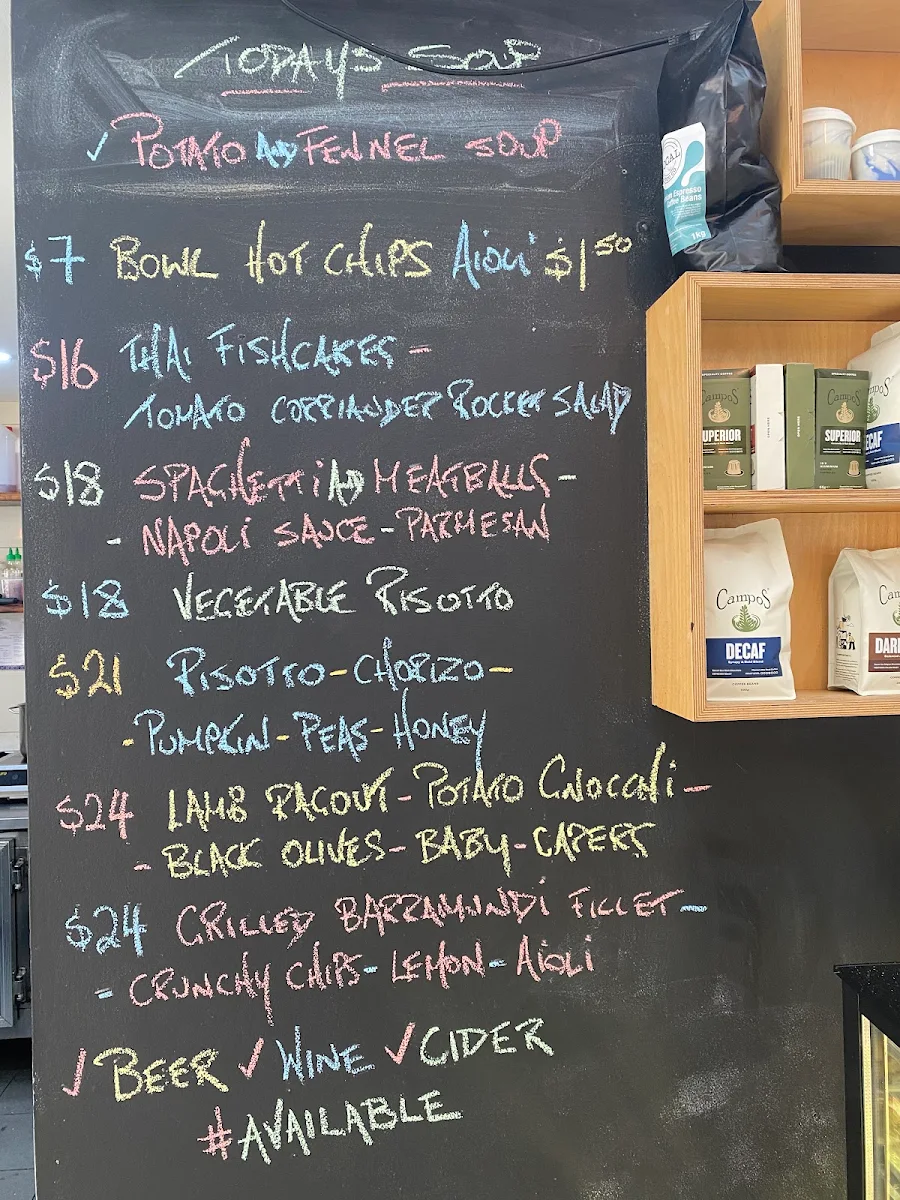 TODAYS SOUP
✓ POTATO AND FENNEL SOUP
$7 BOWL HOT CHIPS AIOLI $1 50
$16 THAI FISHCAKES -
TOMATO CORRIANDER ROCKET SALAD
$18 SPAGHETTI AND MEATBALLS -
- NAPOLI SAUCE - PARMESAN
$18 VEGETABLE RISOTTO
$21 RISOTTO - CHORIZO -
- PUMPKIN - PEAS - HONEY
$24 LAMB RAGOUT - POTATO GNOCCHI -
- BLACK OLIVES - BABY - CAPERS
$24 GRILLED BARRAMUNDI FILLET -
- CRUNCHY CHIPS - LEMON - AIOLI
✓ BEER ✓ WINE ✓ CIDER
# AVAILABLE
Espresso
Coffee Beans
1kg
Campos
SUPERIOR
Campos
SUPERIOR
Campos
DECAF